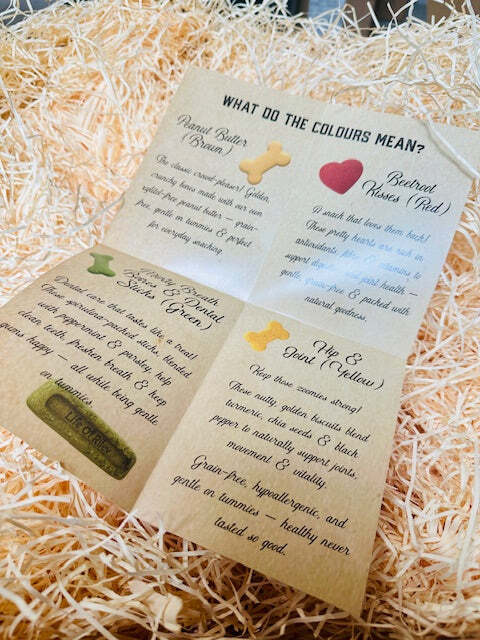 WHAT DO THE COLOURS MEAN?
Peanut Butter
(Brown)
The classic crowd-pleaser! Golden,
crunchy bones made with our own
xylitol-free peanut butter — grain-
free, gentle on tummies & perfect
for everyday snacking.
Beetroot
Kisses (Red)
A snack that loves them back!
These pretty hearts are rich in
antioxidants, fibre & vitamins to
support digestion and joint health —
gentle, grain-free & packed with
natural goodness.
Breath
Bones & Dental
Sticks (Green)
Dental care that tastes like a treat!
These spirulina-packed sticks, blended
with peppermint & parsley, help
clean teeth, freshen breath & keep
gums happy — all while being gentle
on tummies.
Life of Riley
Hip &
Joint (Yellow)
Keep those zoomies strong!
These nutty, golden biscuits blend
turmeric, chia seeds & black
pepper to naturally support joints,
movement & vitality.
Grain-free, hypoallergenic, and
gentle on tummies — healthy never
tasted so good.